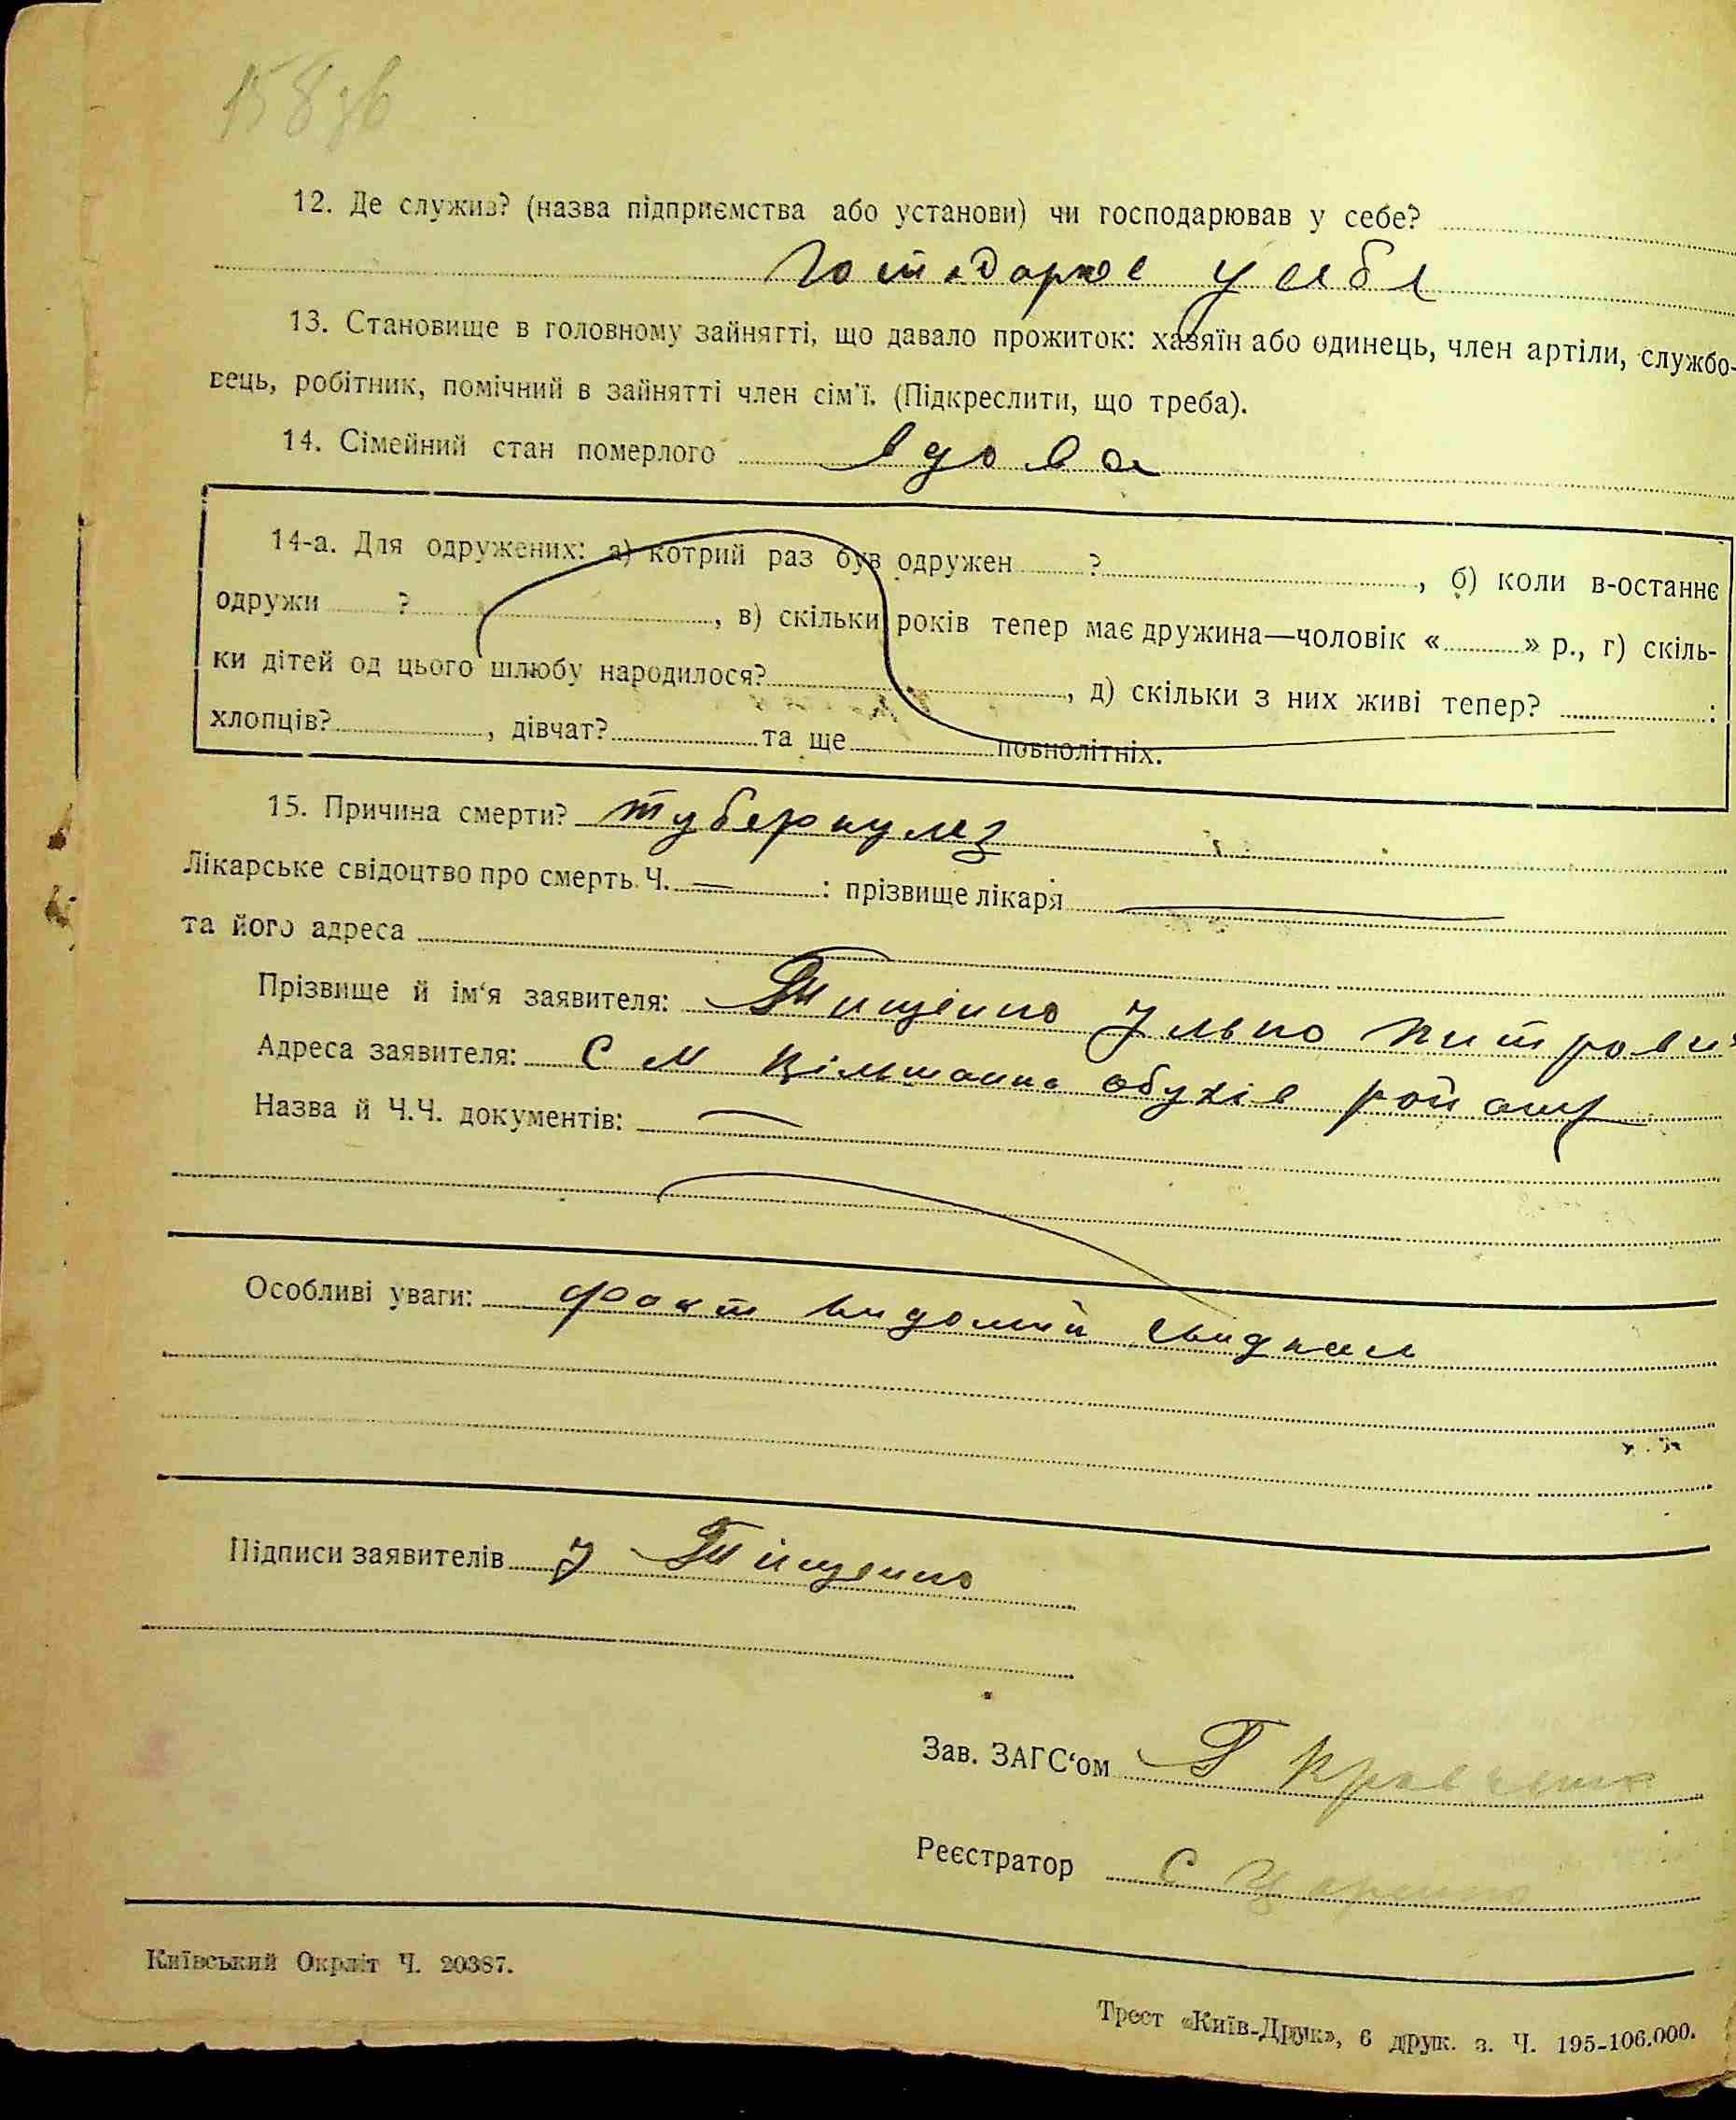 158 зв
12. Де служив? (назва підприємства або установи) чи господарював у себе?
господарює у себе
13. Становище в головному зайнятті, що давало прожиток: хазяїн або одинець, член артіли, службо-
вець, робітник, помічний в зайнятті член сім'ї. (Підкреслити, що треба).
14. Сімейний стан померлого вдова
14-а. Для одружених: а) котрий раз був одружен ?, б) коли в-останнє
одружи ?, в) скільки років тепер має дружина—чоловік «» р., г) скіль-
ки дітей од цього шлюбу народилося?, д) скільки з них живі тепер? :
хлопців?, дівчат? та ще повнолітніх.
15. Причина смерти? туберкулез
Лікарське свідоцтво про смерть Ч. — : прізвище лікаря —
та його адреса
Прізвище й ім'я заявителя: Тищенко Ілько Питрович
Адреса заявителя: С М Вільшанка обухів рой
Назва й Ч.Ч. документів: —
Особливі уваги: факт видомий свидкам
Підписи заявителів І Тіщенко
Зав. ЗАГС'ом Г Кравченко
Реєстратор С Царенко
Київський Окрліт Ч. 20387.
Трест «Київ-Друк», 6 друк. з. Ч. 195-106.000.